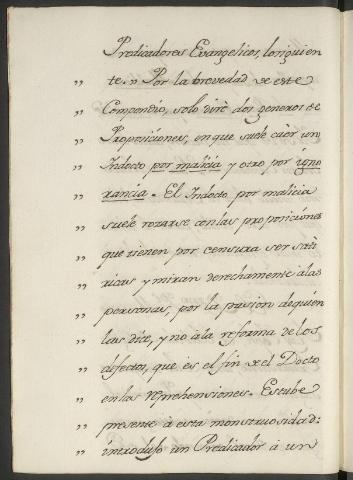 Predicadores Evangelicos, lo siguien
„ te. „ Por la brevedad de este
„ Compendio, solo diré dos generos de
„ Proposiciones, en que suele caèr un
„ Indocto por malicia y otro por igno
„ rancia. El Indocto por malicia
„ suele rozarse con las proposiciones
„ que tienen por censura ser sati
„ ricas y miran derechamente à las
„ personas, por la pasion de quien
„ las dice, y no à la reforma de los
„ defectos, que es el fin de el Docto
„ en las reprehensiones. Estube
„ presente à esta monstruosidad:
„ introdujo un Predicador à un